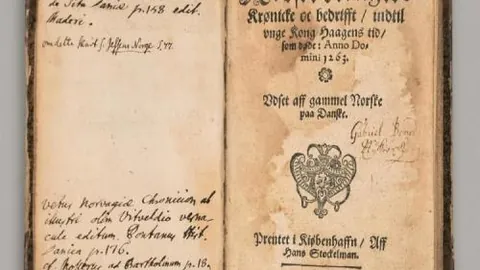 de Scho Daniæ p. 158 edit.
Maderi.
om dette Skrift S. Jessens Norge S. 44.
vetus Norvagiæ Chronicon ab
illustri olim Vitveldio verna
cula editum. Pontanus Hist.
Danica p. 176.
ad Bartholinum p. 18.
Krønicke oc bedrifft / indtil
vnge Kong Haagens tid /
som døde: Anno Do-
mini 1263.
Vdset aff gammel Norske
paa Danske.
Gabriel
Prentet i Kiøbenhaffn / Aff
Hans Stockelman.